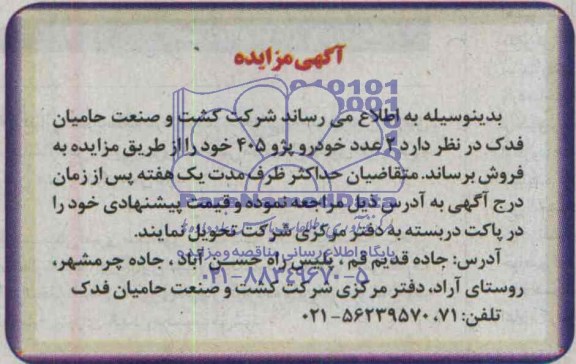 آگهی مزایده
بدینوسیله به اطلاع می رساند شرکت کشت و صنعت حامیان
فدک در نظر دارد ۲ عدد خودرو پژو ۴۰۵ خود را از طریق مزایده به
فروش برساند. متقاضیان حداکثر ظرف مدت یک هفته پس از زمان
درج آگهی به آدرس ذیل مراجعه نموده و قیمت پیشنهادی خود را
در پاکت دربسته به دفتر مرکزی شرکت تحویل نمایند.
پایگاه اطلاع رسانی مناقصه و مزایده
آدرس: جاده قدیم قم ، پلیس راه حسن آباد ، جاده چرمشهر،
۰۲۱-۸۸۳۴۹۶۷۰-۵
روستای آراد، دفتر مرکزی شرکت کشت و صنعت حامیان فدک
تلفن: ۷۱. ۵۶۲۳۹۵۷۰-۰۲۱